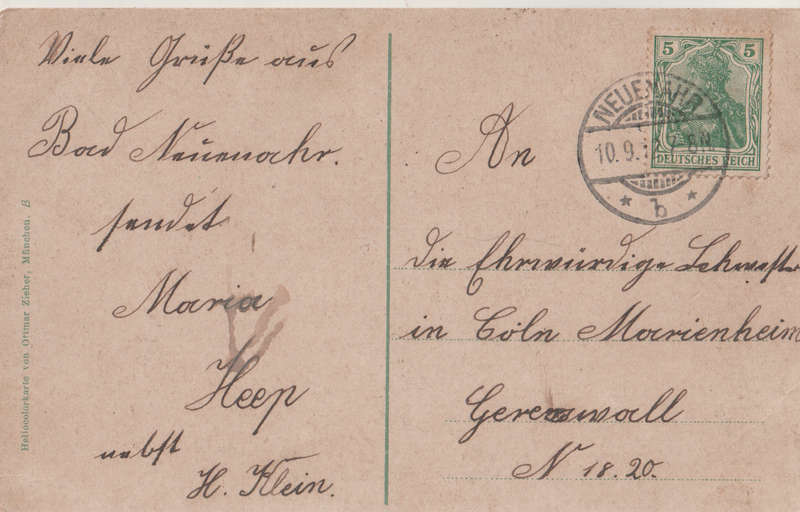 Viele Grüße aus
Bad Neuenahr.
sendet
Maria
Heep
nebst
H. Klein.
Heliocolorkarte von Ottmar Zieher, München. B
5 5
DEUTSCHES REICH
NEUENAHR
10.9.
b
An
die Ehrwürdige Schwester
in Cöln Marienheim
N 18.20.